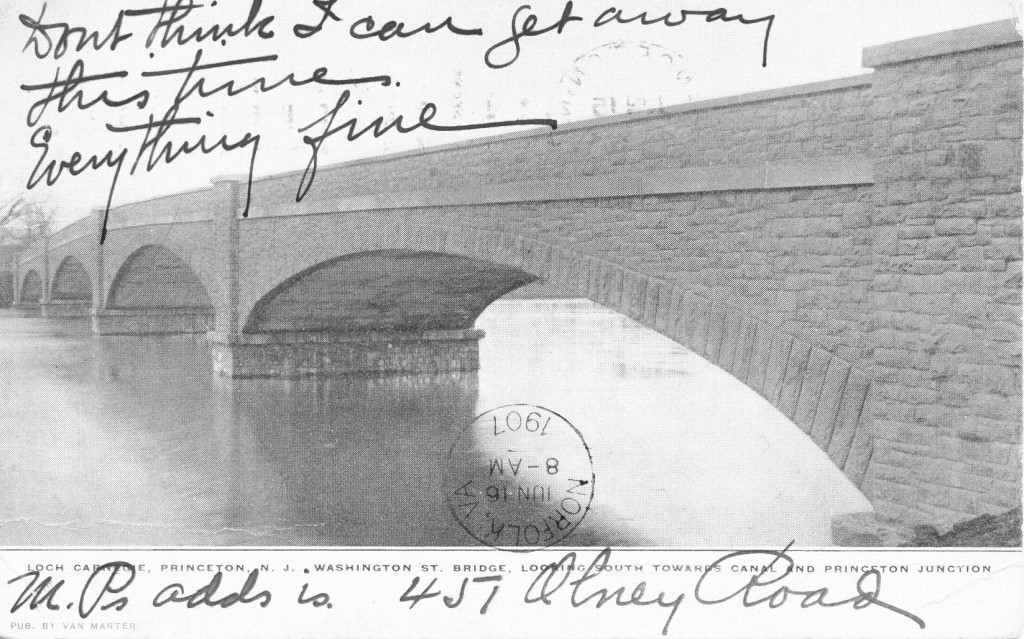 Dont think I can get away
this time.
Everything fine
NORFOLK, VA
JUN 16
8-AM
1907
LOCH CARNEGIE, PRINCETON, N. J. WASHINGTON ST. BRIDGE, LOOKING SOUTH TOWARDS CANAL AND PRINCETON JUNCTION
M. P's adds is. 457 Olney Road
PUB. BY VAN MARTER